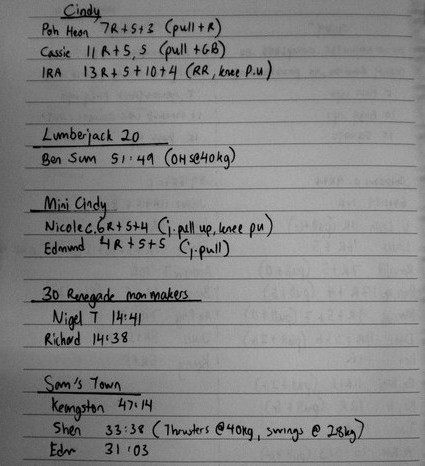 Cindy
Poh Heon 7R+5+3 (pull+R)
Cassie 11R+5, 5 (pull+GB)
IRA 13R+5+10+4 (RR, knee P.u)
Lumberjack 20
Ben Sum 51:49 (OHS@40kg)
Mini Cindy
Nicole C. 6R+5+4 (j.pull up, knee pu)
Edmund 4R+5+5 (j.pull)
30 Renegade man makers
Nigel T 14:41
Richard 14:38
Sam's Town
47:14
Shen 33:38 (Thrusters @40kg, swings @ 28kg)
Edm 31:03